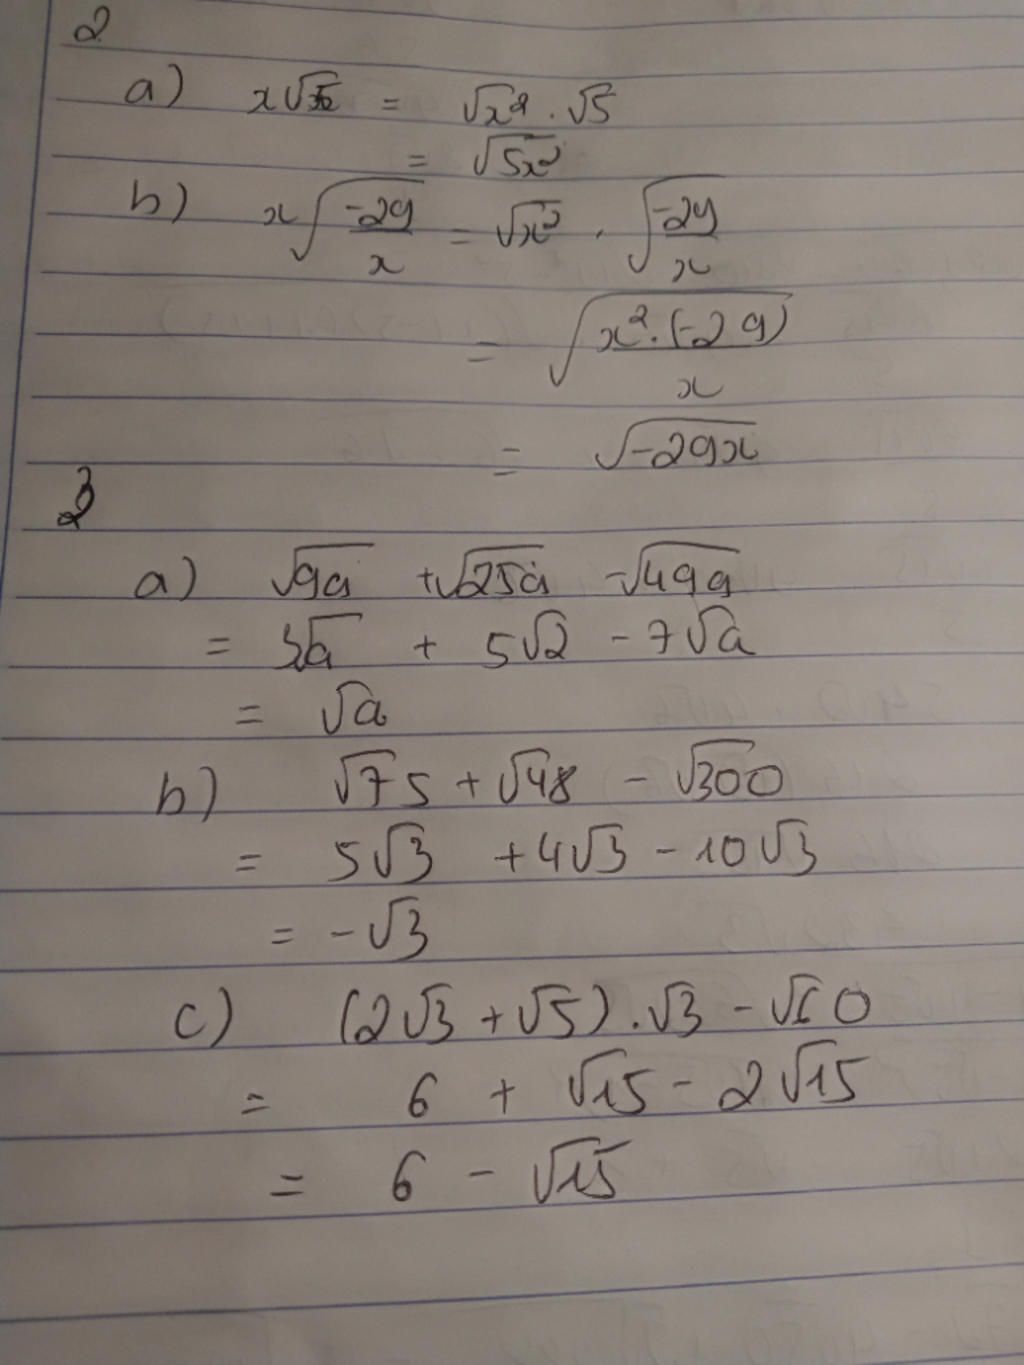 2
a) x√5 = √x² . √5
= √5x²
b) x√(-29/x) = √x² . √(-29/x)
= √(x².(-29)/x)
= √-29x
3
a) √9a + √25a - √49a
= 3√a + 5√2 - 7√a
= √a
b) √75 + √48 - √300
= 5√3 + 4√3 - 10√3
= -√3
c) (2√3 + √5) . √3 - √60
= 6 + √15 - 2√15
= 6 - √15